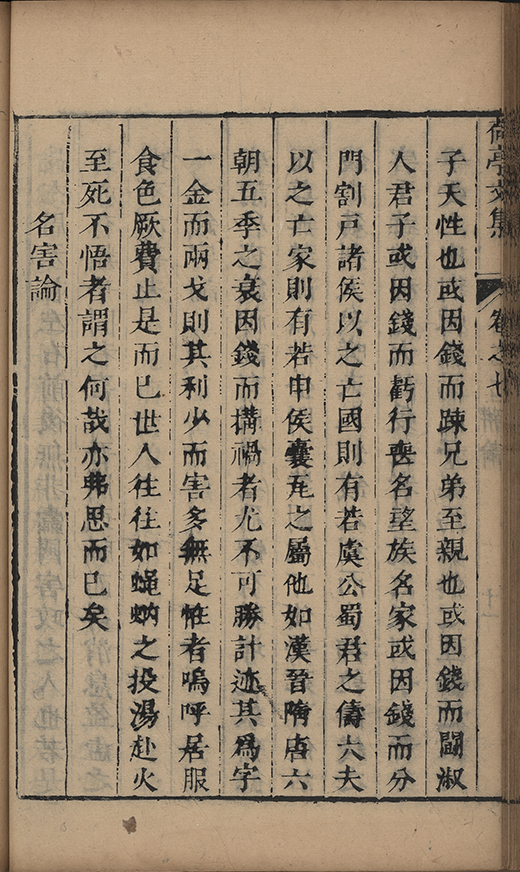 亭文集 卷之七
子天性也或因錢而踈兄弟至親也或因錢而鬪淑
人君子或因錢而虧行喪名望族名家或因錢而分
門割戸諸侯以之亡國則有若虞公蜀君之儔大夫
以之亡家則有若申侯囊瓦之屬他如漢晉隋唐六
朝五季之衰因錢而搆禍者尤不可勝計迹其爲字
一金而兩戈則其利少而害多無足恠者嗚呼居服
食色厥費止是而已世人往往如蝇蚋之投湯赴火
至死不悟者謂之何哉亦弗思而已矣
名害論